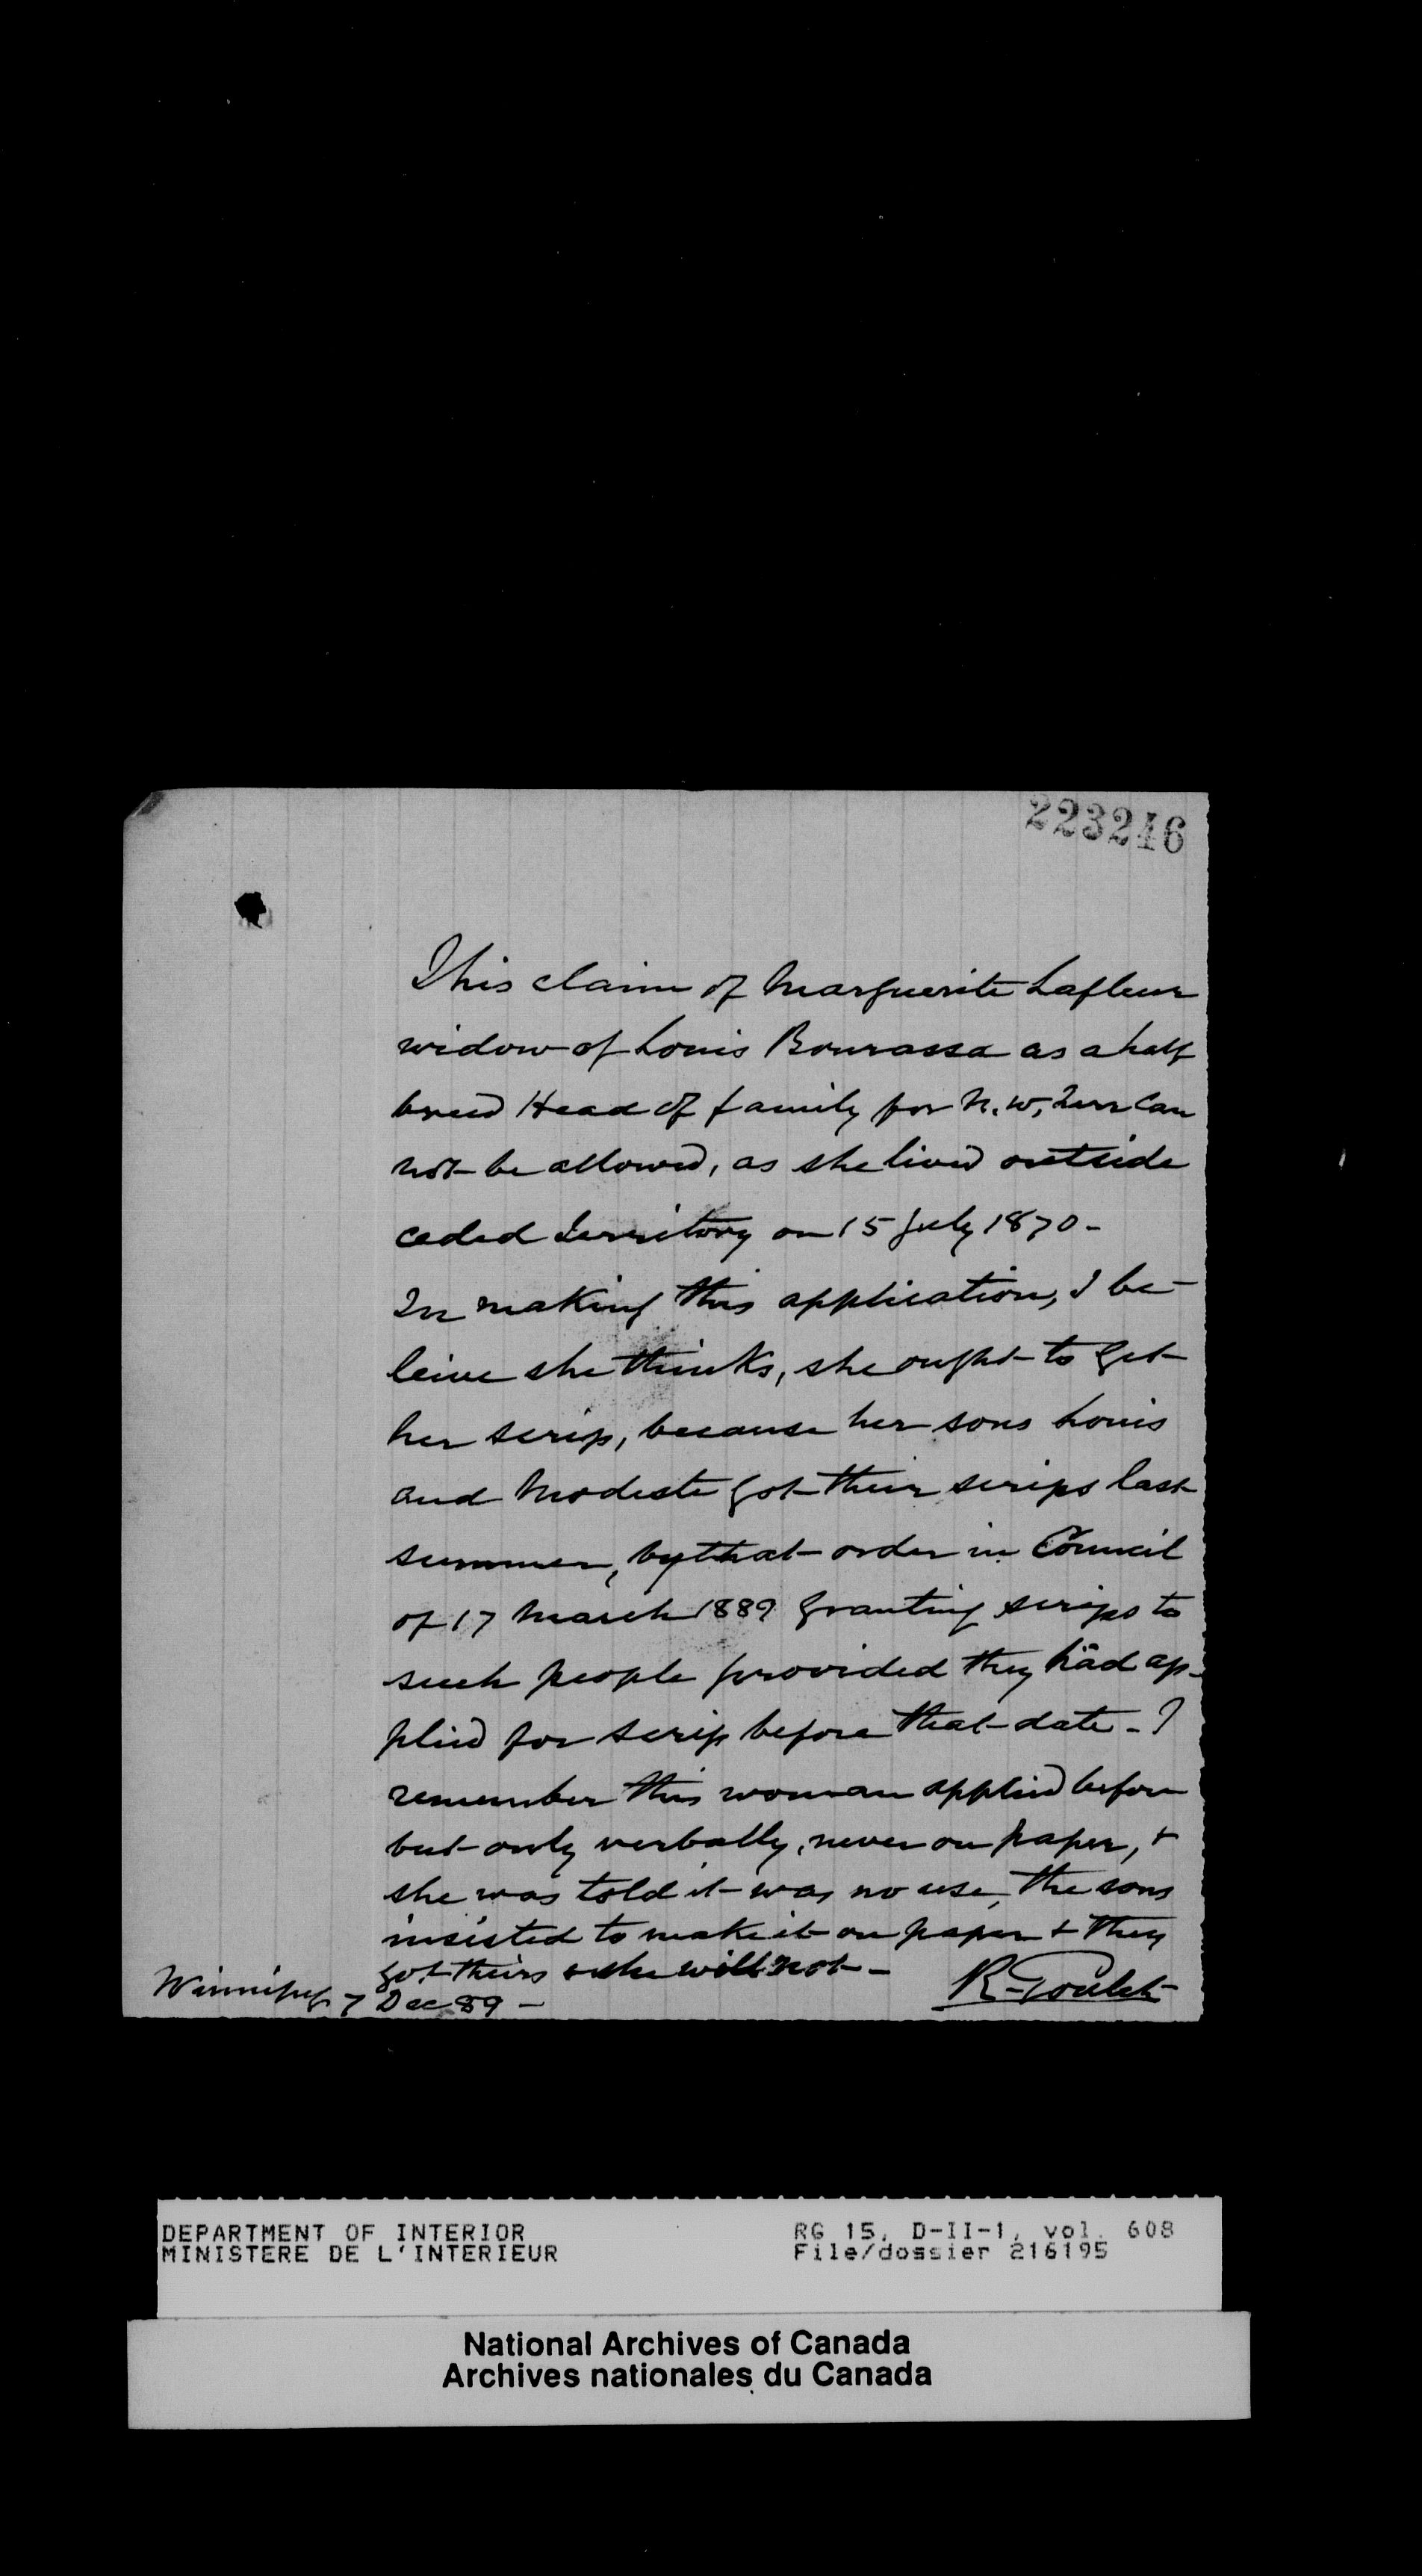 223246
This claim of Marguerite Lafleur
widow of Louis Bourassa as a half
breed Head of family for N.W. Terr can
not be allowed, as she lived outside
ceded territory on 15 July 1870-
In making this application, I be-
leive she thinks, she ought to get
her scrip, because her sons Louis
and Modeste got their scrips last
summer, by that order in Council
of 17 March 1889 granting scrips to
such people provided they had ap-
plied for scrip before that date - I
remember this woman applied before
but only verbally, never on paper, +
she was told it was no use, the sons
insisted to make it on paper + they
got theirs & she will not -
Winnipeg 7 Dec 89 -
R. Goulet
DEPARTMENT OF INTERIOR RG 15, D-II-1, vol. 608
MINISTERE DE L'INTERIEUR File/dossier 216195
National Archives of Canada
Archives nationales du Canada